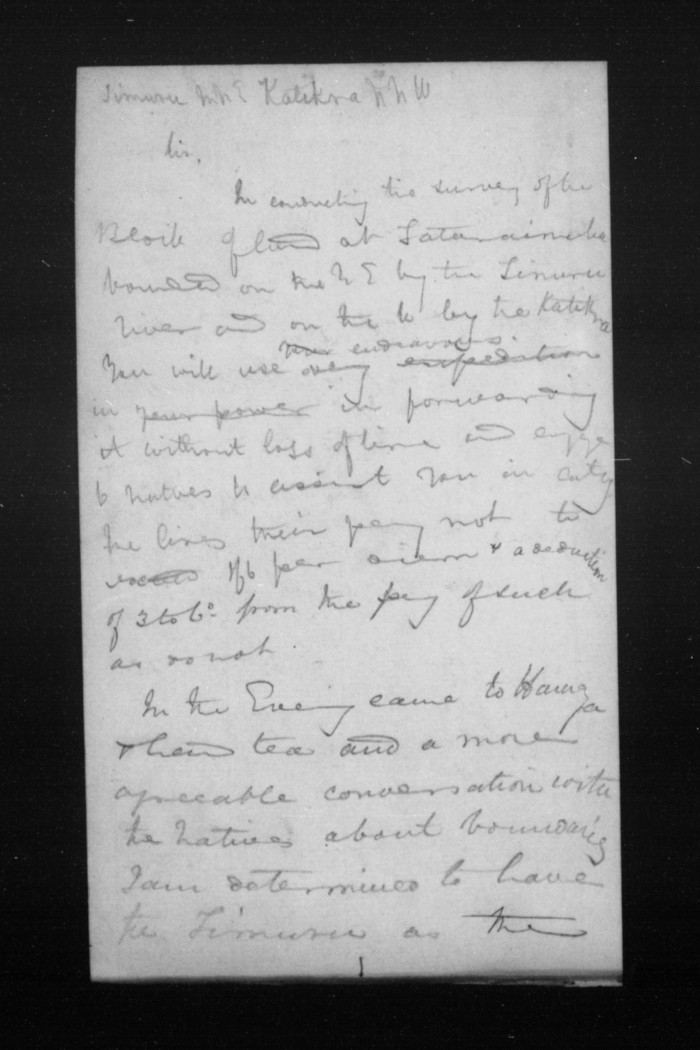 Timuru N N E Katikra N N W
Sir,
In conducting the survey of the
Block of land at Tataraimaka
bounded on the N E by the Timuru
River and on the W by the Katikra
You will use your endeavours every expedition
in your power in forwarding
it without loss of time and engage
6 natives to assist you in cutg
the lines their pay not to
exceed 1/6 per diem & a deduction
of 3 to 6d from the pay of such
as do not
In the Evening came to Hauraga
& had tea and a more
agreeable conversation with
the natives about boundaries
I am determined to have
the Timuru as the